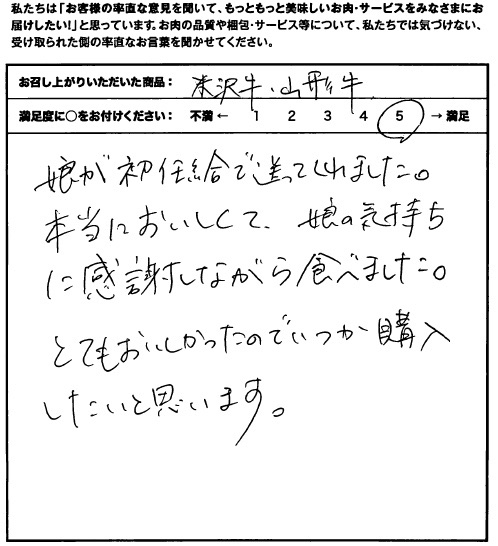 私たちは「お客様の率直な意見を聞いて、もっともっと美味しいお肉・サービスをみなさまにお
届けしたい!」と思っています。お肉の品質や梱包・サービス等について、私たちでは気づけない、
受け取られた側の率直なお言葉を聞かせてください。
お召し上がりいただいた商品： 米沢牛・山形牛
満足度に○をお付けください： 不満 ← 1 2 3 4 5 → 満足
娘が初任給で送ってくれました。
本当においしくて、娘の気持ち
に感謝しながら食べました。
とてもおいしかったのでいつか購入
したいと思います。